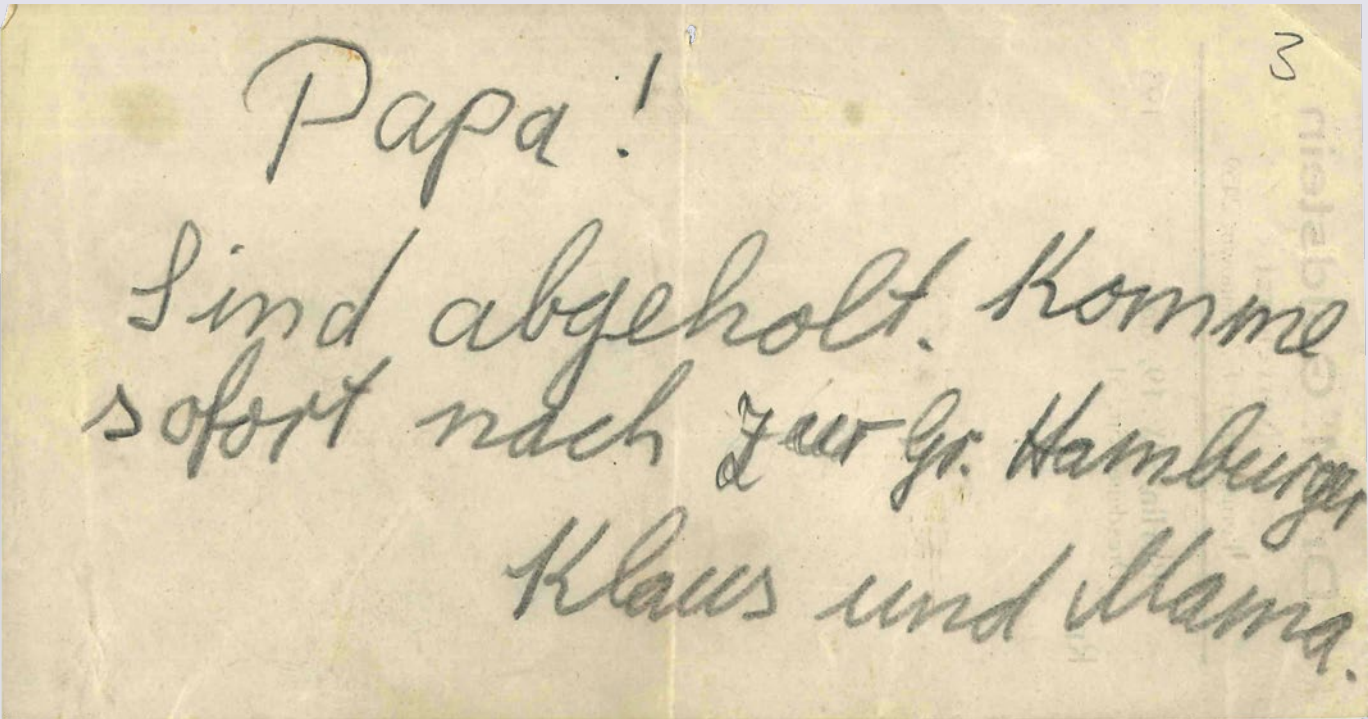 3
Papa!
Sind abgeholt. Komme
sofort nach zur Gr. Hamburger
Klaus und Mama.